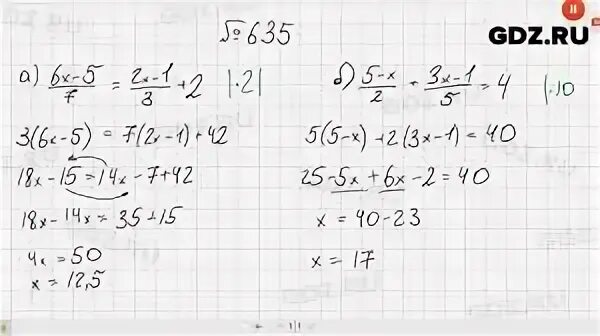 № 635
GDZ.RU
а) (6x-5)/7 = (2x-1)/3 + 2 |·21
3(6x-5) = 7(2x-1)+42
18x-15=14x-7+42
18x-14x = 35+15
4x = 50
x = 12,5
б) (5-x)/2 + (3x-1)/5 = 4 |·10
5(5-x)+2(3x-1)=40
25-5x+6x-2=40
x = 40-23
x = 17